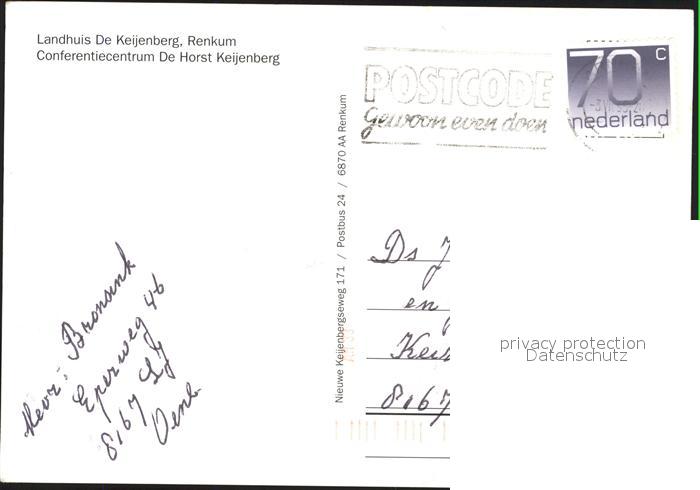 Landhuis De Keijenberg, Renkum
Conferentiecentrum De Horst Keijenberg
POSTCODE
Gewoon even doen
70 c
nederland
Nieuwe Keijenbergseweg 171 / Postbus 24 / 6870 AA Renkum
Ds J
en
8167
privacy protection
Datenschutz
Bronsink
Eperweg 46
8167
Oene